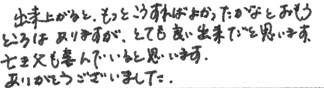 出来上がると、もっとこうすればよかったかなとおもう
ところはありますが、とても良い出来だと思います。
亡き父も喜んでいると思います。
ありがとうございました。